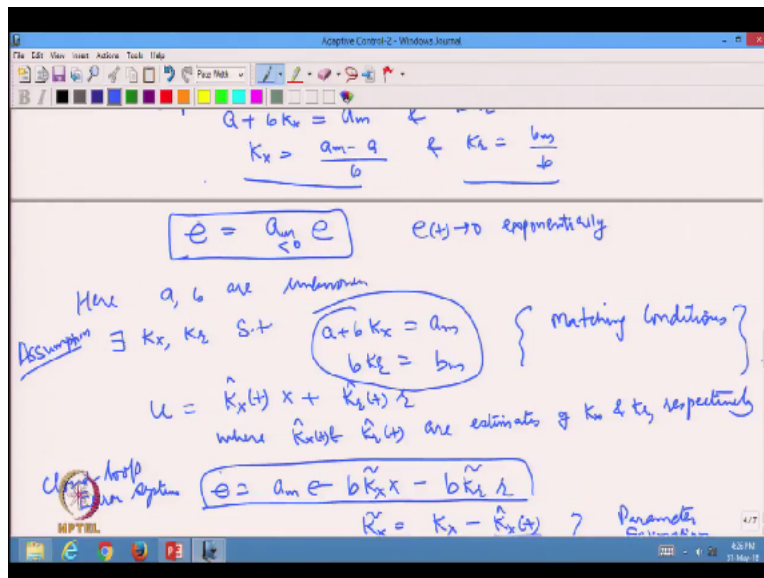 Adaptive Control-2 - Windows Journal
File Edit View Insert Actions Tools Help
Page Width
B I
a + b Kx = am &
Kx = (am - a)/b & Kr = bm/b
ė = am e e(t)→0 exponentially
<0
Here a, b are unknown
Assumption ∃ Kx, Kr s.t a+b Kx = am { Matching Conditions }
b Kr = bm
u = K̂x(t) x + K̂r(t) r
where K̂x(t) & K̂r(t) are estimates of Kx & Kr, respectively
Closed-loop Error System ė = am e - b K̃x x - b K̃r r
K̃x = Kx - K̂x(t) } Parameter
Estimation
NPTEL
4/7
4:26 PM
31-May-18